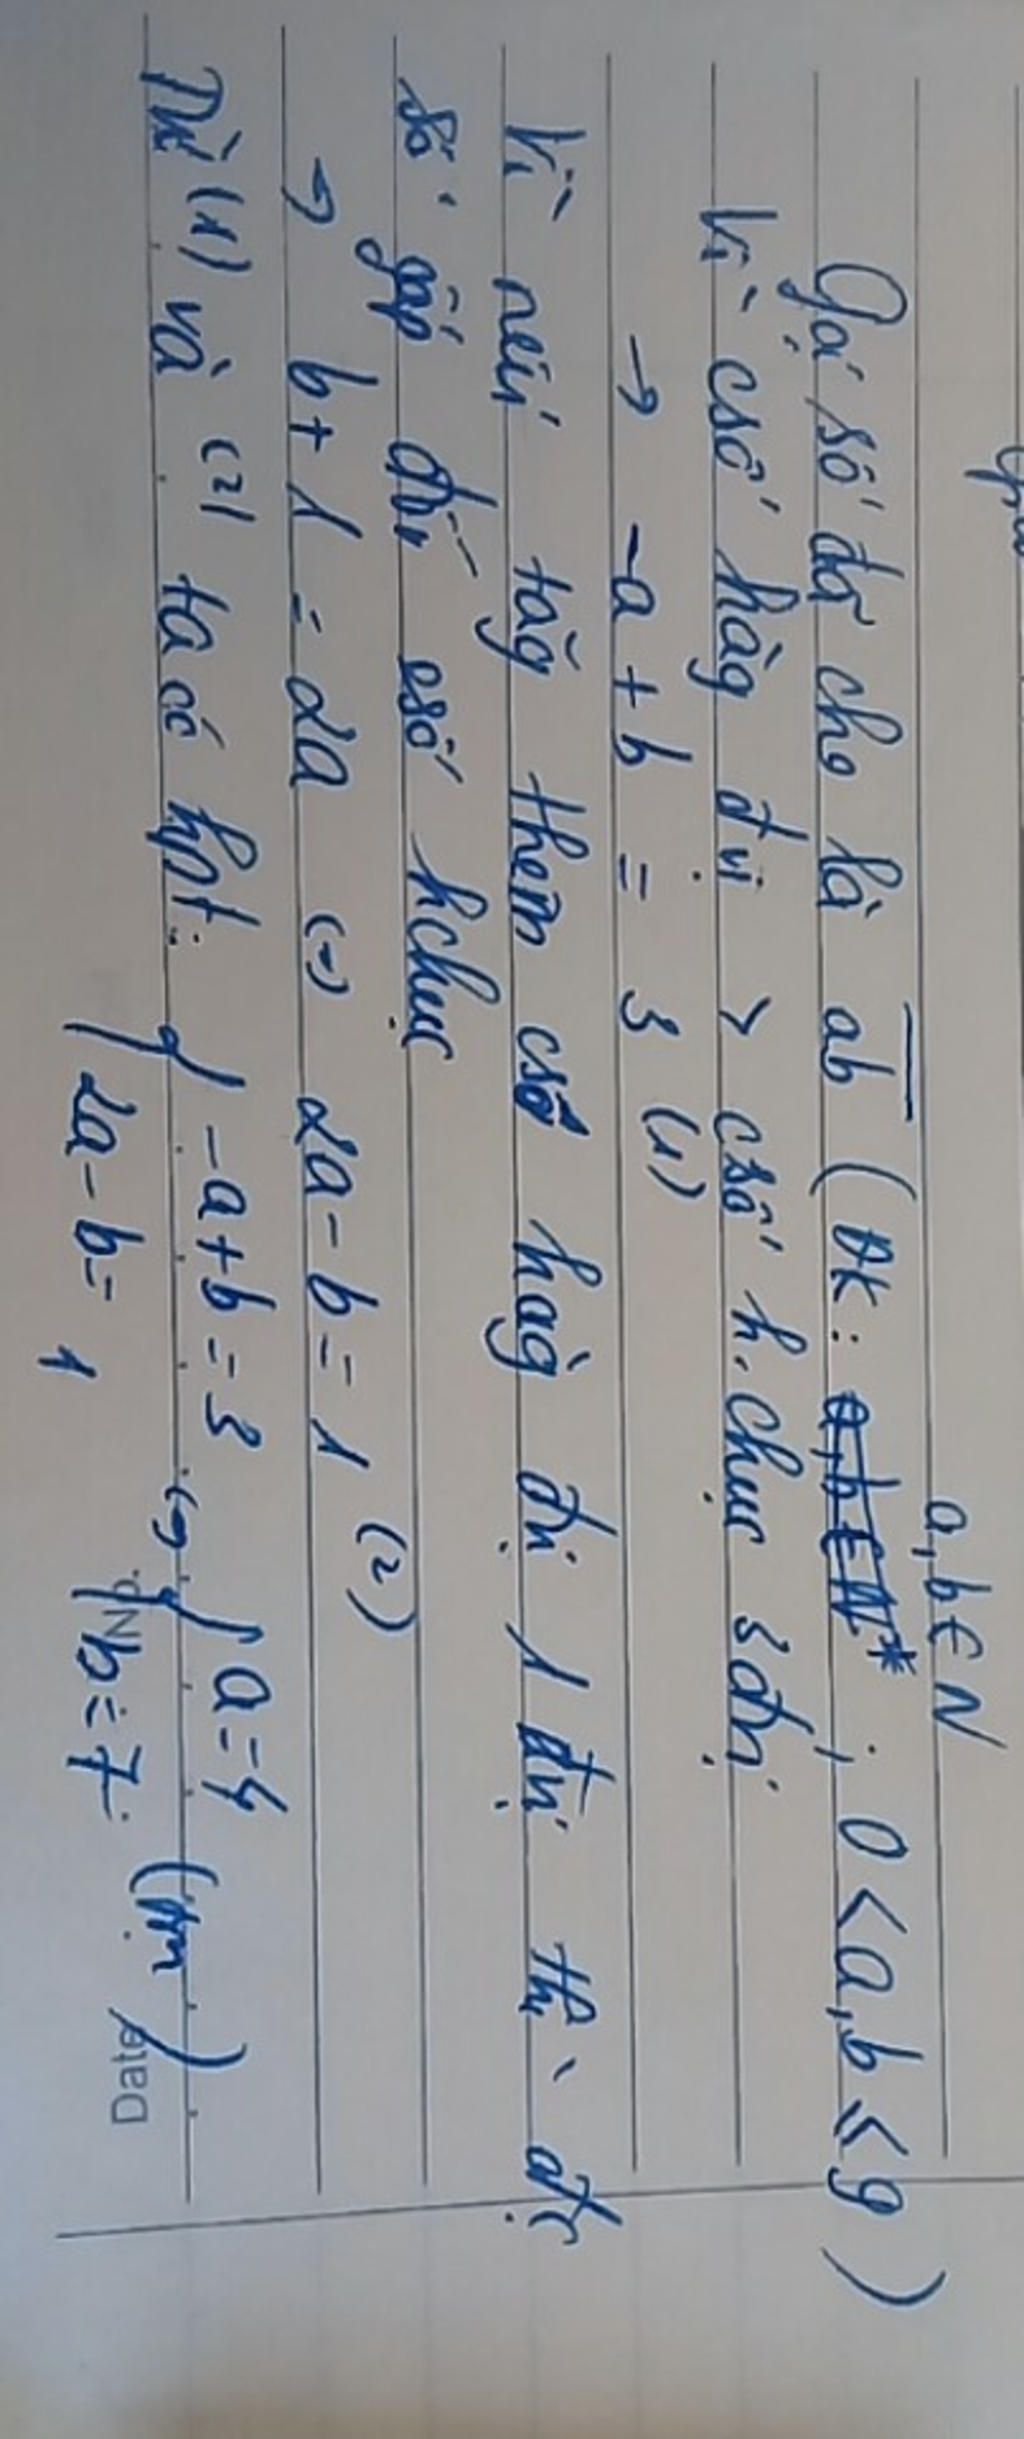 a, b ∈ N
Gọi số đã cho là ab (ĐK: a, b ∈ N* ; 0 < a, b ≤ 9)
Vì csố hàg đvị > csố h.chục 3 đvị
→ -a + b = 3 (1)
Vì nếu tăg thêm csố hàg đvị 1 đvị thì đợc
số gấp đôi csố hchục
→ b + 1 = 2a (=) 2a - b = 1 (2)
Từ (1) và (2) ta có hpt: { -a + b = 3 (=) { a = 4
2a - b = 1 b = 7 (tm)
No. Date